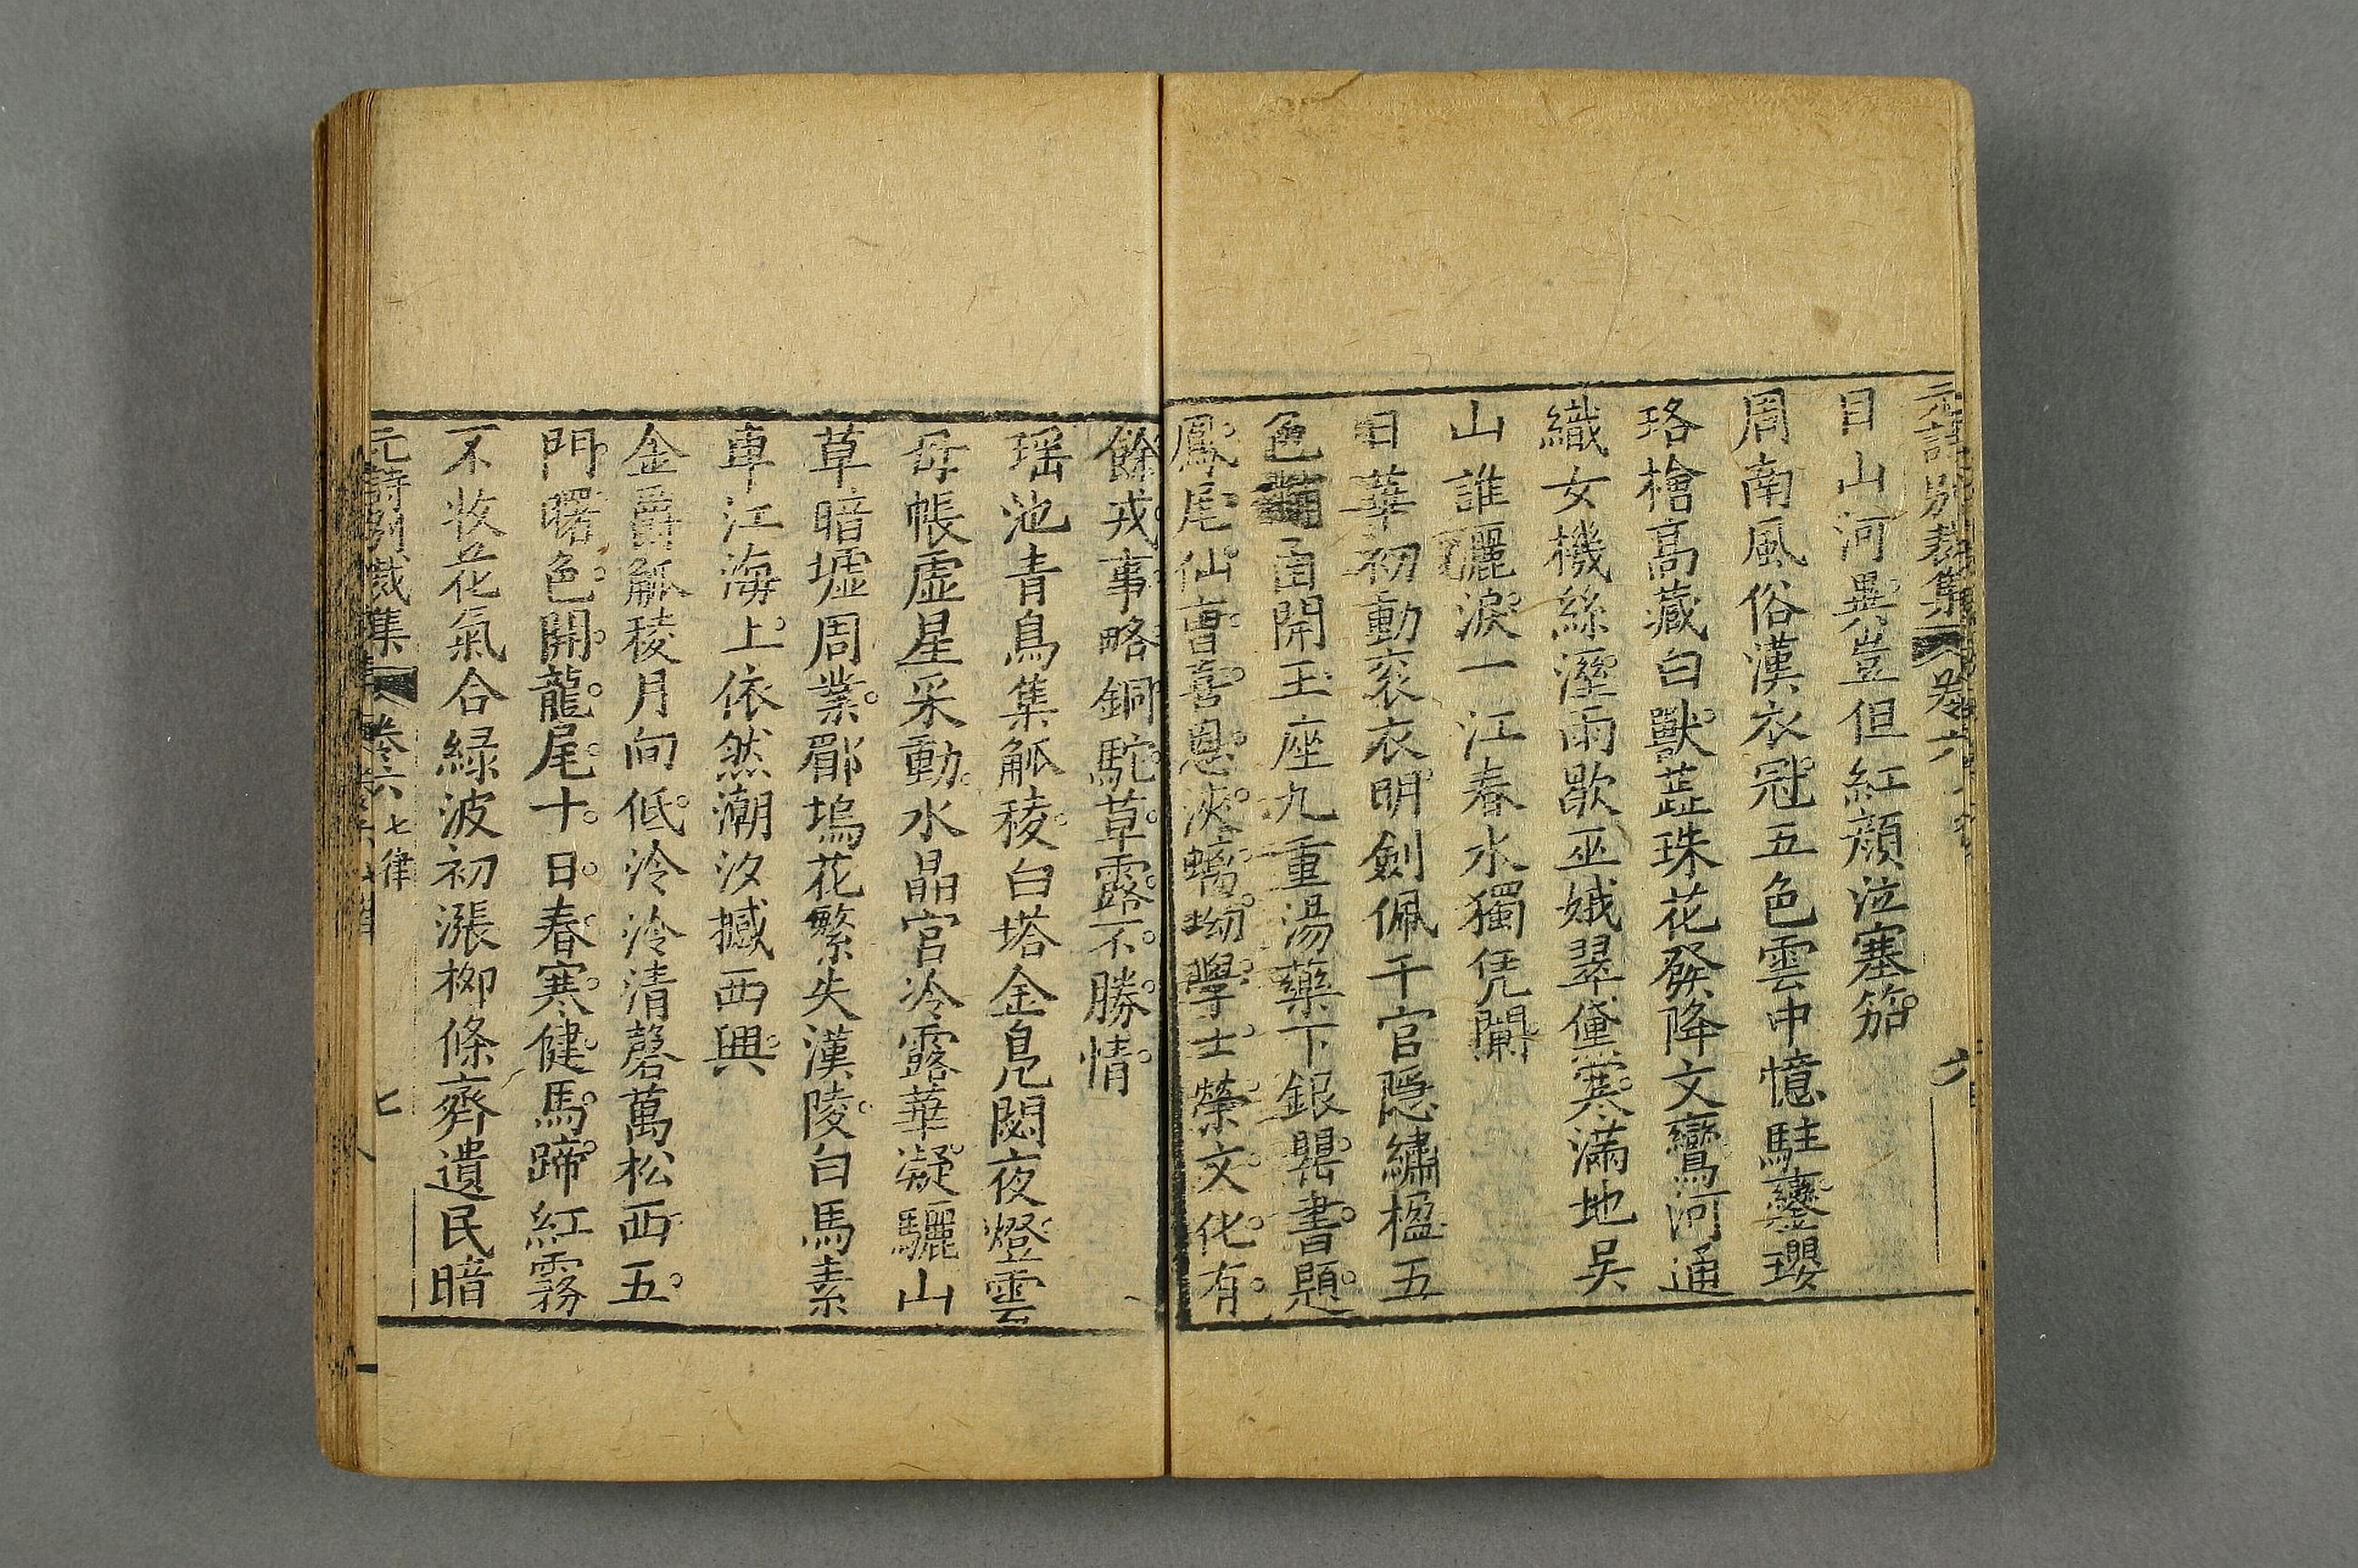 元詩別裁集 卷六 六
目山河異豈但紅顏泣塞笳
周南風俗漢衣冠五色雲中憶駐鑾瓔
珞檜高藏白獸蕋珠花發降文鸞河通
織女機絲溼雨歇巫娥翠黛寒滿地吴
山誰灑淚一江春水獨凭闌
日華初動衮衣明劍佩千官隱繡楹五
色 開玉座九重湯藥下銀罌書題
鳳尾仙曹喜恩浹螭坳學士榮文化有
餘戎事略銅駝草露不勝情
瑶池青鳥集觚稜白塔金凫閟夜燈雲
母帳虛星采動水晶宫冷露華凝驪山
草暗墟周業郿塢花繁失漢陵白馬素
車江海上依然潮汐撼西興
金爵觚稜月向低泠泠清磬萬松西五
門曙色開龍尾十日春寒健馬蹄紅霧
不收花氣合緑波初漲栁條齊遺民暗
元詩別裁集 卷六 七律 七